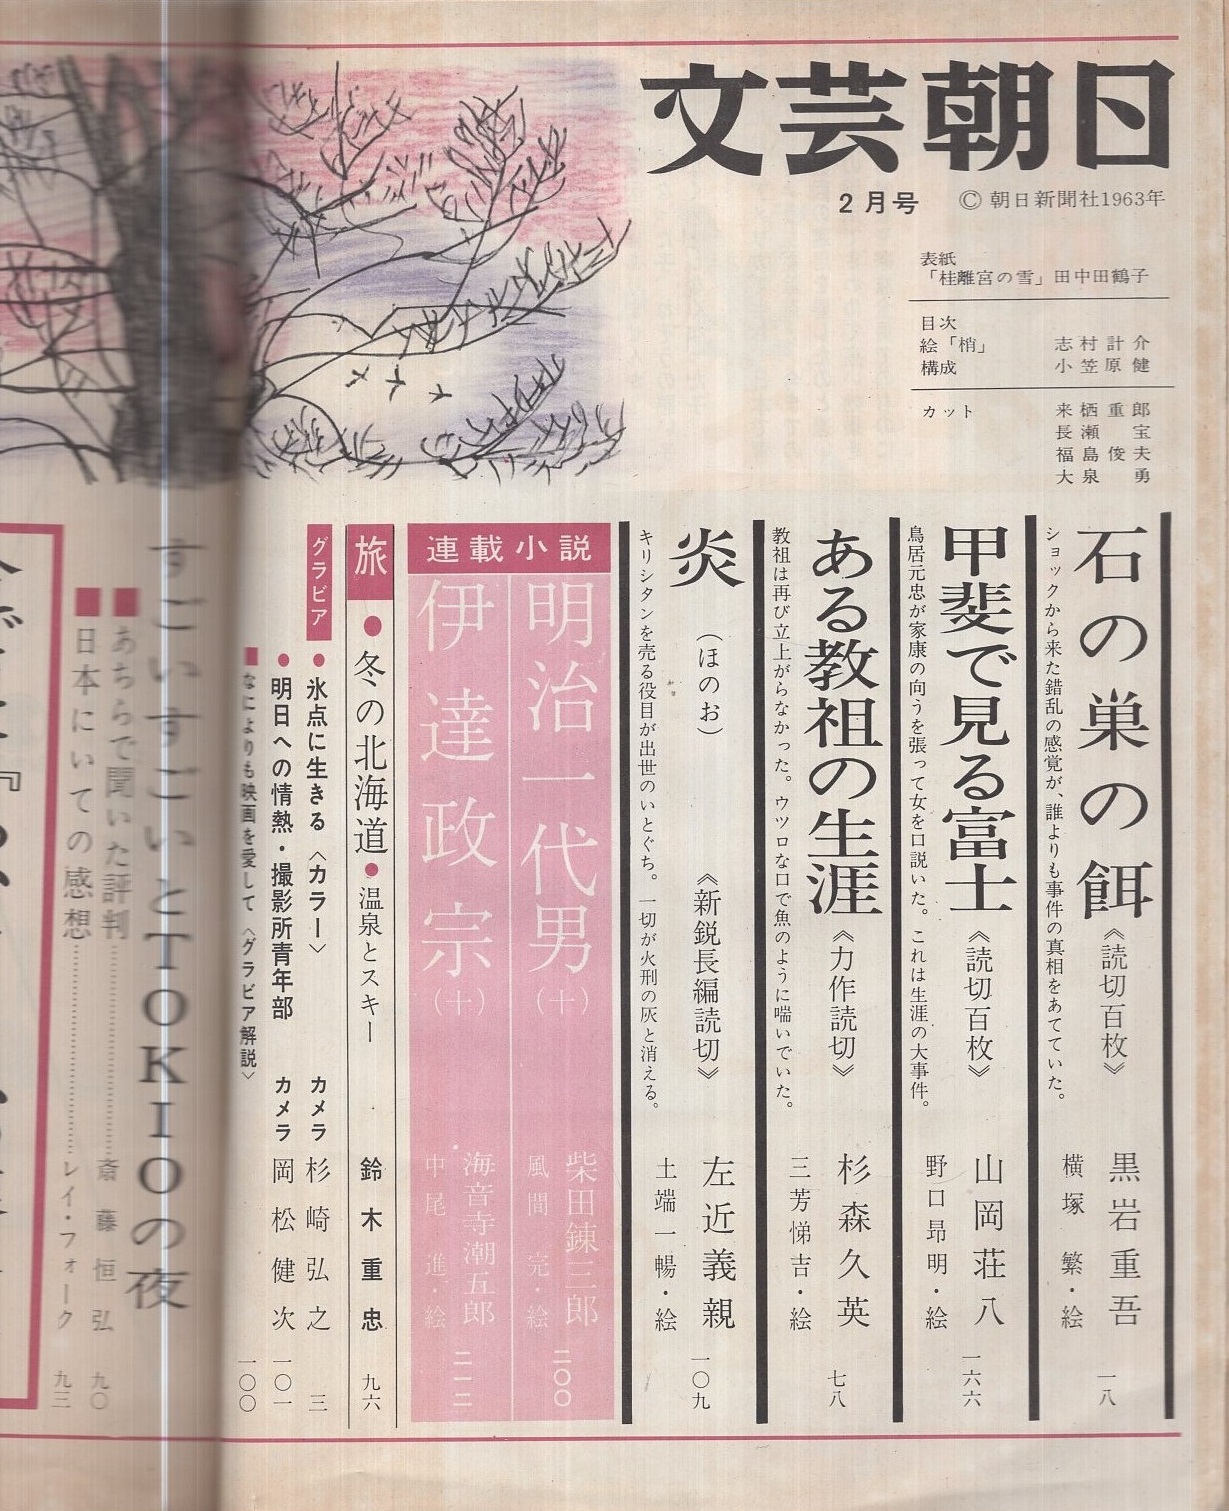 文芸朝日
2月号 © 朝日新聞社1963年
表紙
「桂離宮の雪」田中田鶴子
目次
絵「梢」 志村計介
構成 小笠原健
カット 来栖重郎
長瀬宝
福島俊夫
大泉勇
石の巣の餌《読切百枚》 黒岩重吾 一八
ショックから来た錯乱の感覚が、誰よりも事件の真相をあてていた。 横塚繁・絵
甲斐で見る富士《読切百枚》 山岡荘八 一六六
鳥居元忠が家康の向うを張って女を口説いた。これは生涯の大事件。 野口昻明・絵
ある教祖の生涯《力作読切》 杉森久英 七八
教祖は再び立上がらなかった。ウツロな口で魚のように喘いでいた。 三芳悌吉・絵
炎(ほのお)《新鋭長編読切》 左近義親 一〇九
キリシタンを売る役目が出世のいとぐち。一切が火刑の灰と消える。 土端一暢・絵
連載小説
明治一代男(十) 柴田錬三郎 二〇〇
風間完・絵
伊達政宗(十) 海音寺潮五郎 二一二
中尾進・絵
旅 ●冬の北海道●温泉とスキー 鈴木重忠 九六
グラビア
●氷点に生きる〈カラー〉 カメラ 杉崎弘之 三
●明日への情熱・撮影所青年部 カメラ 岡松健次 一〇一
■なによりも映画を愛して〈グラビア解説〉 一〇〇
すごいすごいとTOKIOの夜
■あちらで聞いた評判 斎藤恒弘 九〇
■日本にいての感想 レイ・フォーク 九三